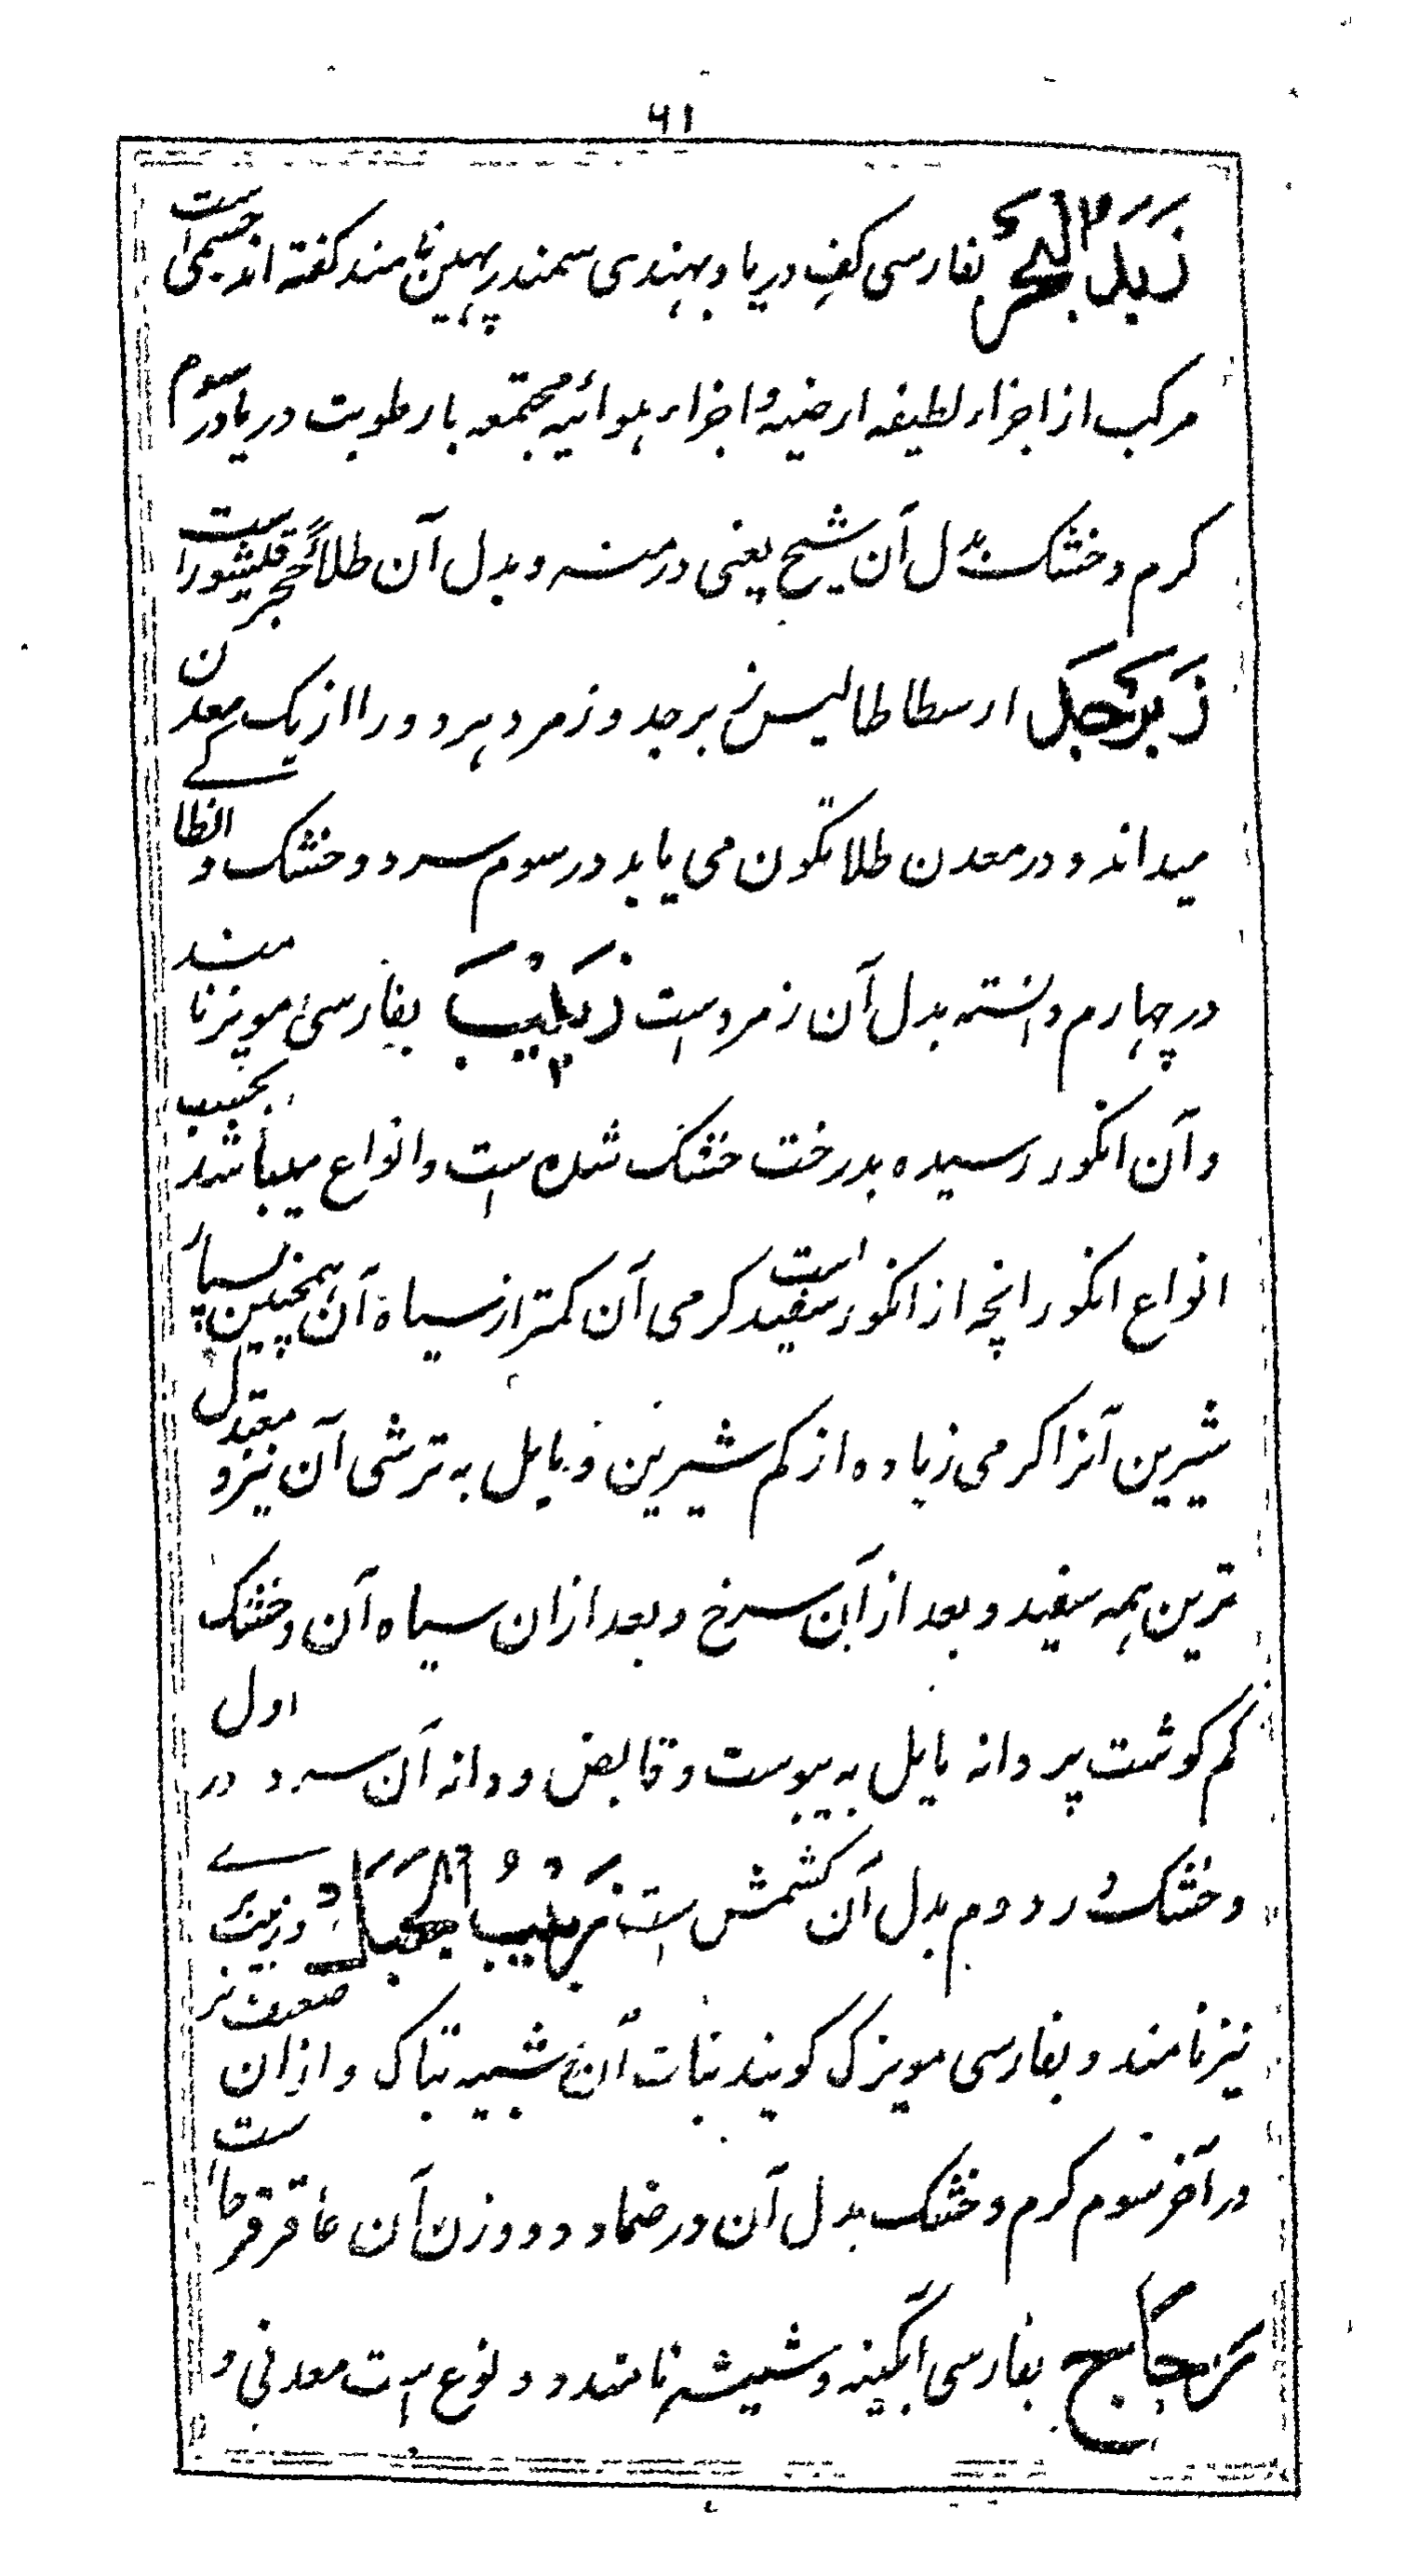 ۶۱
زَبَدُ الْبَحْر بفارسی کفِ دریا و بهندی سمندر پهین نامند گفته اند جسمی است
مرکب از اجزاء لطیفه ارضیه و اجزاء هوائیه مجتمعه با رطوبت دریا در سوم
گرم و خشک بدل آن شیح یعنی درمنه و بدل آن طلاءً حجر قیشور است
زَبَرْجَد ارسطاطالیس زبرجد و زمرد هر دو را از یک معدن
میداند و در معدن طلا تکون می یابد در سوم سرد و خشک و انطاکے
در چهارم دانسته بدل آن زمرد است زَبِیْب بفارسی مویز نامند
و آن انگور رسیده بدرخت خشک شده است و انواع میباشد بحسب
انواع انگور انچه از انگور سفید است گرمی آن کمتر از سیاه آن همچنین بسیار
شیرین آنرا گرمی زیاده از کم شیرین و مایل به ترشی آن نیز و معتدل
ترین همه سفید و بعد از آن سرخ و بعد ازان سیاه آن و خشک
کم گوشت پر دانه مایل به یبوست و قابض و دانه آن سرد در اول
و خشک در دوم بدل آن کشمش است زَبِیْبُ الْجَبَل و زبیب بری
نیز نامند و بفارسی مویزک گویند نبات آن شبیه بتاک و ازان ضعیف تر
در آخر سوم گرم و خشک بدل آن در ضماد دو وزن آن عاقرقرحا است
زُجَاج بفارسی آبگینه و شیشه نامند و دو نوع است معدنی و